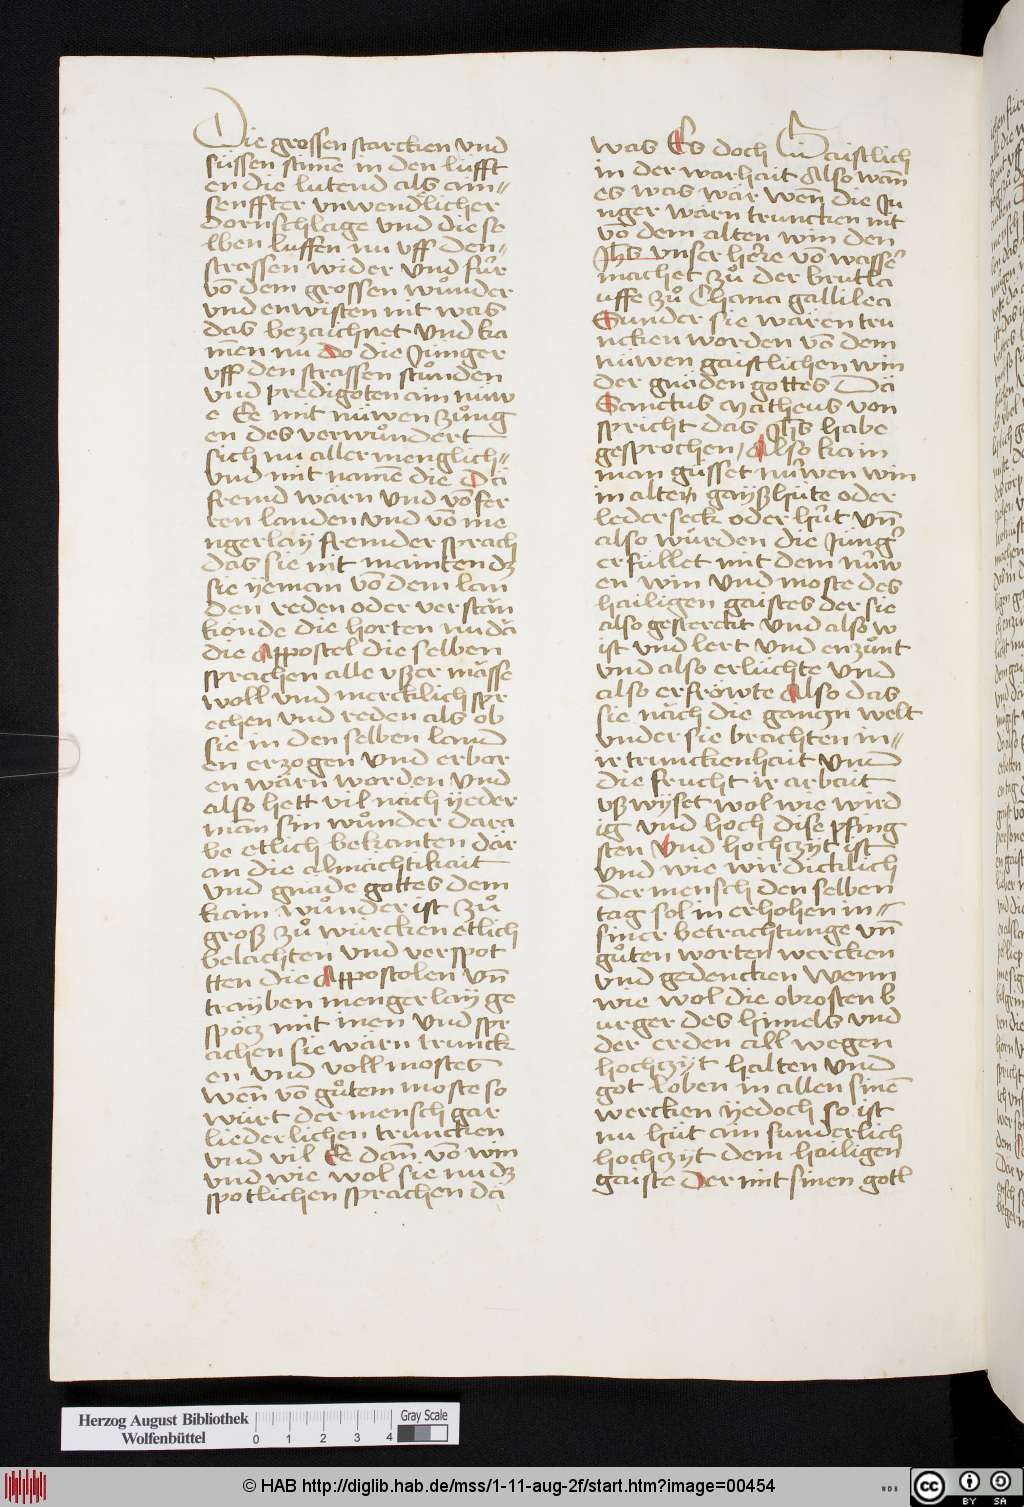 Die grossen starcken vnd
süssen stim̄e in den lüfft
en die lutend als ain⸗
senffter vnwendlicher
dornschlage vnd die se
lben luffen nu vff den⸗
strassen wider vnd fůr
vō dem grossen wůnder
vnd enwisten nit was
das bezaichnet vnd ka
men nu do die Jünger
vff den strassen stůnden
vnd predigoten ain nuw
e Ee mit nüwen zůng
en des verwůndert
sich nu aller menglich⸗
vnd mit namē die Da
fremd warn vnd vō fer
ren landen vnd vō me
ngerlaÿ fremder sprach
das sie nit maintendz
sie ÿeman vō dem lan
den reden oder verstän
könde die horten nu dā
die Appostel die selben
sprachen alle vßer mässe
woll vnd mercklich spr
echen vnd reden als ob
sie in den selben land
en erzogen vnd erbor
en wärn worden vnd
also hett vil nach ÿeder
man sin wůnder dara
be etlich bekanten dar
an die almachtikait
vnd gnade gottes dem
kain wůnder ist zů
groß zů würcken etlich
belachten vnd verspot
tten die Appostolen vn̄
traÿben mengerlaÿ ge
spöcz mit inen vnd spr
achen sie wärn trunck
en vnd voll mostes
wen̄ vō gůtem moste so
würt der mensch gar
liederlichen truncken
vnd vil Ee dan̄ vō win
vnd wie wol sie nu dz
spotlichen sprachen da
was Es doch Gaistlich
in der warhait Also wan̄
es was wär wen̄ die Ju
nger warn truncken nit
vō dem alten win den
Jhs vnser here vō wasser
machet zů der brutla
uffe zů Chana gallilea
Sunder sie wären tru
ncken worden von dem
nüwen gaistlichen win
der gnaden gottes Da
Sanctus Matheus von
spricht das Jhs habe
gesprochen / Also kain
man güsset nüwen win
in alten gayßhüte oder
lederseck oder hüt vn̄
also würden die Jünger
erfüllet mit dem nüw
en win vnd moste des
hailigen gaistes der sie
also gesterckt vnd also w
ist vnd lert vnd enzůnt
vnd also erlüchte vnd
also erfröwte Also das
sie näch die gantzn welt
vnder sie brachten in⸗
ir trunckenhait vnd
die frucht ir arbait
vßwÿset wol wie wird
ig vnd hoch dise pfing
sten vnd hochzÿt ist
vnd wie wirdicklich
der mensch den selben
tag sol in erhohen in⸗
siner betrachtunge vn̄
gůten worten wercken
vnd gedencken Wenn
wie wol die obrosten b
urger des himels vnd
der erden all wegen
hochzÿt halten vnd
got loben in allen sinē
wercken ÿedoch so ist
nu hüt ain sunderlich
hochzÿt dem hailigen
gaiste Der mit sinen gotl
Herzog August Bibliothek
Wolfenbüttel
0 1 2 3 4
Gray Scale
© HAB http://diglib.hab.de/mss/1-11-aug-2f/start.htm?image=00454
cc BY SA